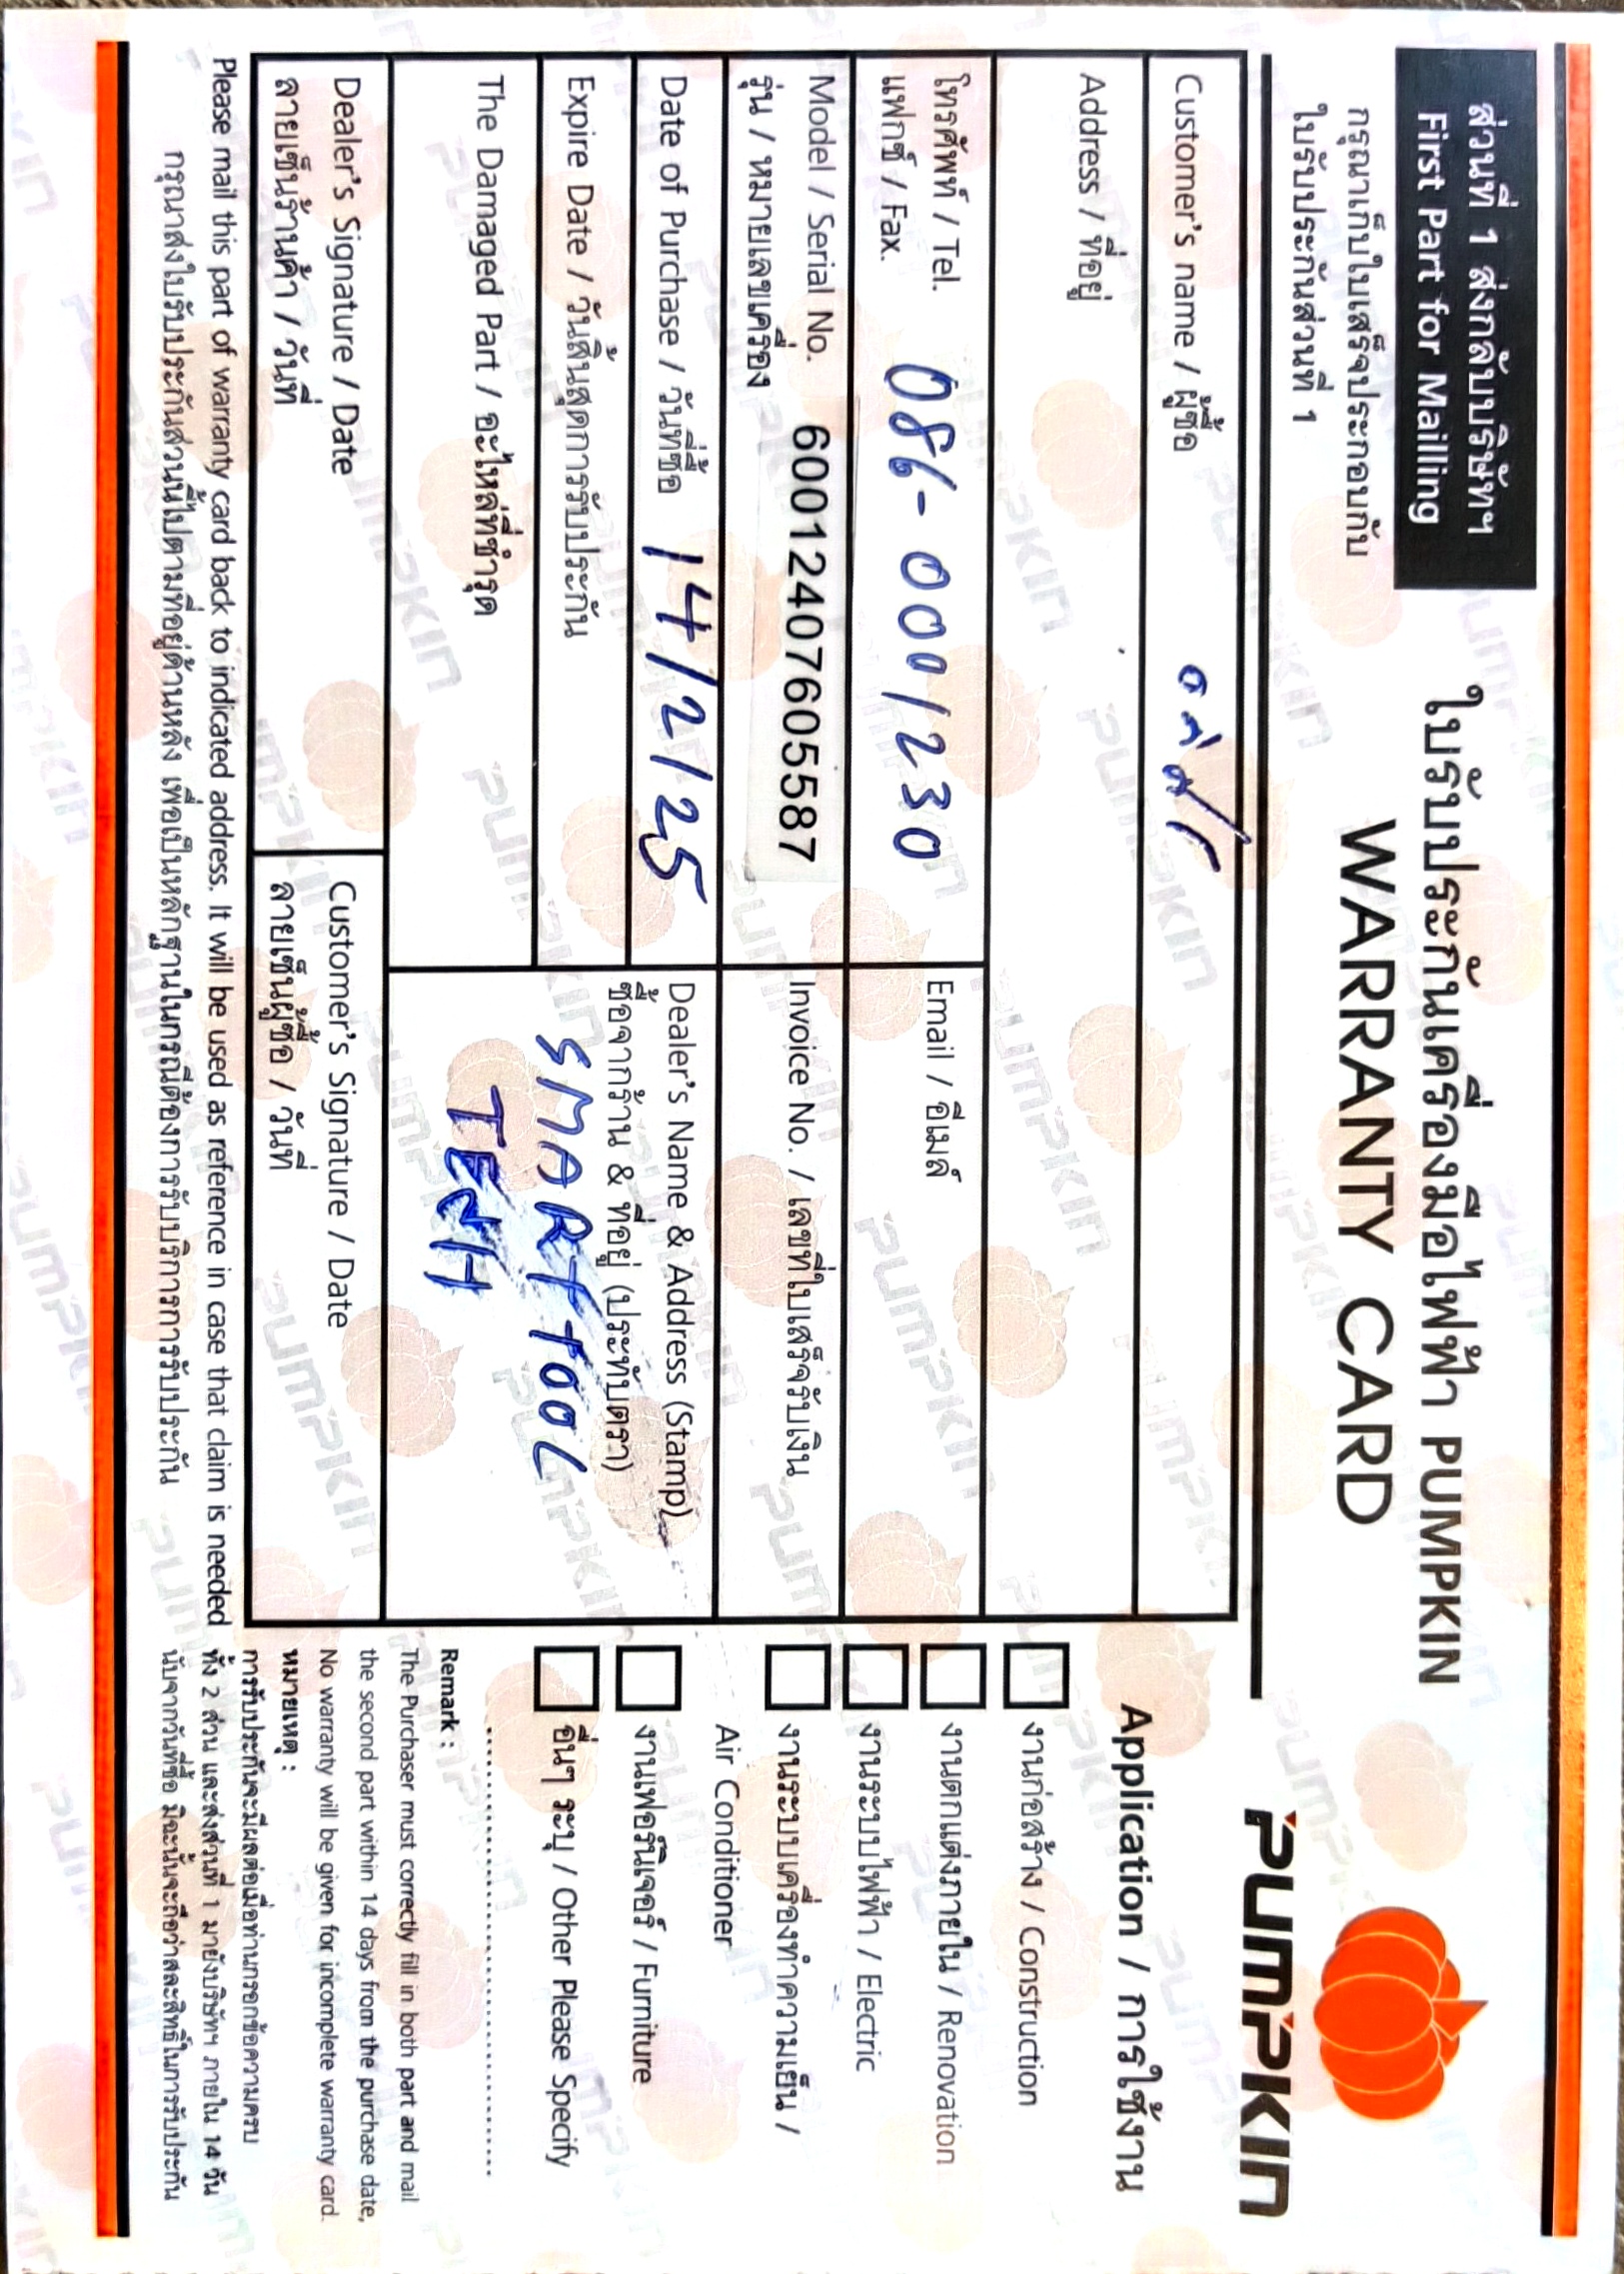 ส่วนที่ 1 ส่งกลับบริษัทฯ
First Part for Mailling
กรุณาเก็บใบเสร็จประกอบกับ
ใบรับประกันส่วนที่ 1
ใบรับประกันเครื่องมือไฟฟ้า PUMPKIN
WARRANTY CARD
PUMPKIN
Customer's name / ผู้ซื้อ
Address / ที่อยู่
โทรศัพท์ / Tel.
แฟกซ์ / Fax.
086-0001230
Email / อีเมล์
Model / Serial No.
รุ่น / หมายเลขเครื่อง
60012407605587
Invoice No. / เลขที่ใบเสร็จรับเงิน
Date of Purchase / วันที่ซื้อ 14/2/25
Expire Date / วันสิ้นสุดการรับประกัน
The Damaged Part / อะไหล่ที่ชำรุด
Dealer's Name & Address (Stamp)
ซื้อจากร้าน & ที่อยู่ (ประทับตรา)
SMART TOOL
Dealer's Signature / Date
ลายเซ็นร้านค้า / วันที่
Customer's Signature / Date
ลายเซ็นผู้ซื้อ / วันที่
Please mail this part of warranty card back to indicated address. It will be used as reference in case that claim is needed
กรุณาส่งใบรับประกันส่วนนี้ไปตามที่อยู่ด้านหลัง เพื่อเป็นหลักฐานในกรณีต้องการรับบริการการรับประกัน
Application / การใช้งาน
งานก่อสร้าง / Construction
งานตกแต่งภายใน / Renovation
งานระบบไฟฟ้า / Electric
งานระบบเครื่องทำความเย็น /
Air Conditioner
งานเฟอร์นิเจอร์ / Furniture
อื่นๆ ระบุ / Other Please Specify
Remark :
The Purchaser must correctly fill in both part and mail
the second part within 14 days from the purchase date,
No warranty will be given for incomplete warranty card.
หมายเหตุ :
การรับประกันจะมีผลต่อเมื่อท่านกรอกข้อความครบ
ทั้ง 2 ส่วน และส่งส่วนที่ 1 มายังบริษัทฯ ภายใน 14 วัน
นับจากวันที่ซื้อ มิฉะนั้นจะถือว่าสละสิทธิ์ในการรับประกัน